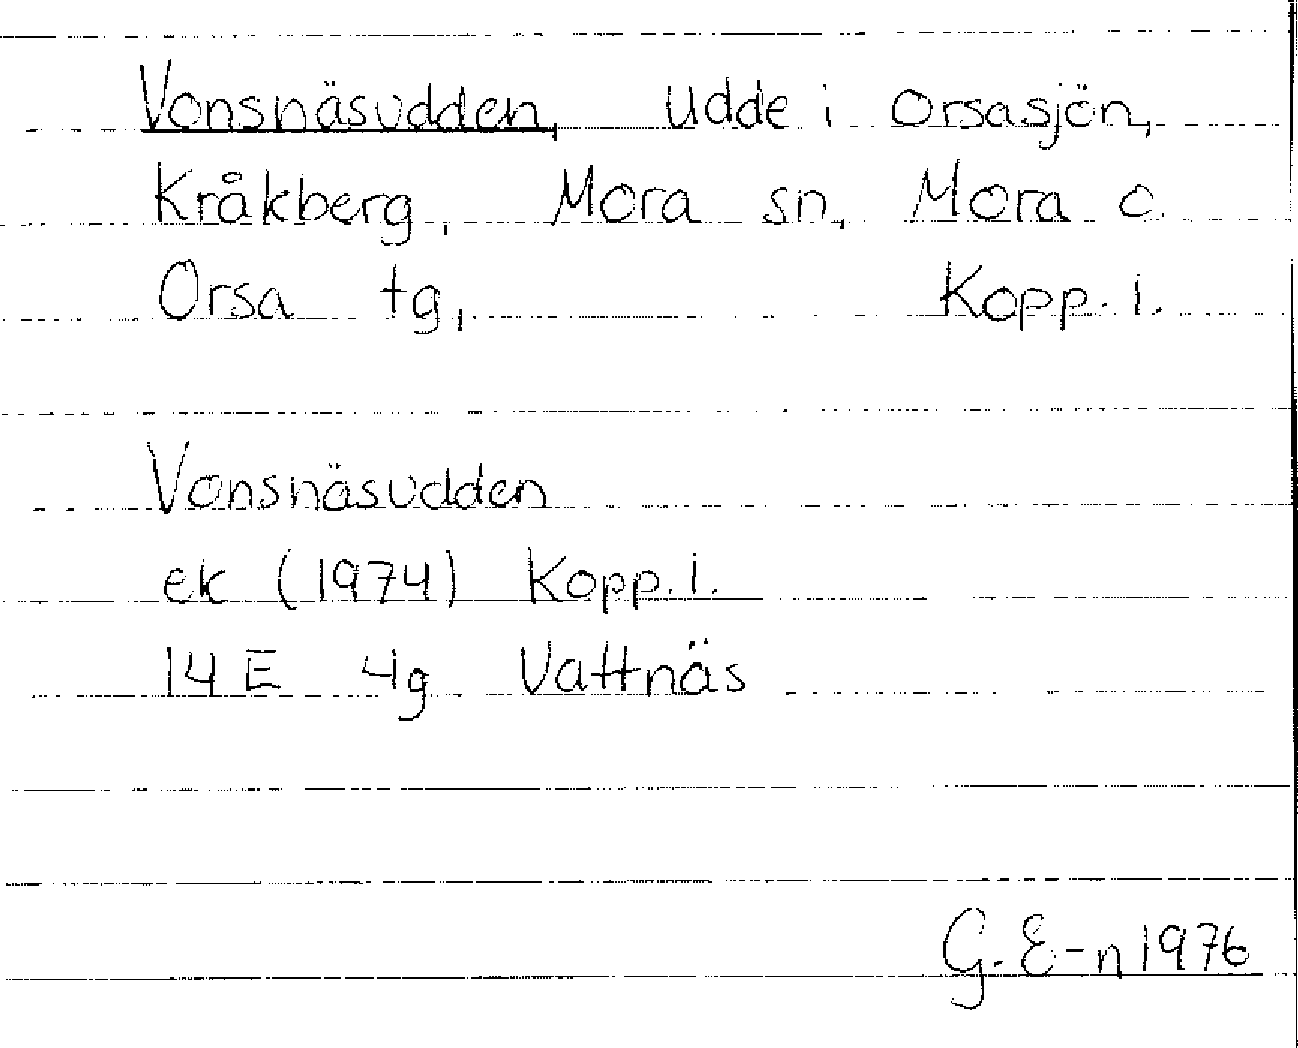 Vonsnäsudden, udde i Orsasjön,
Kråkberg, Mora sn, Mora o.
Orsa tg, Kopp. l.
Vonsnäsudden
ek (1974) Kopp. l.
14 E 4g Vattnäs
G. E-n 1976